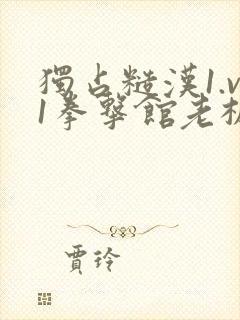 獨占糙漢1.v
1拳擊館老板
賈玲